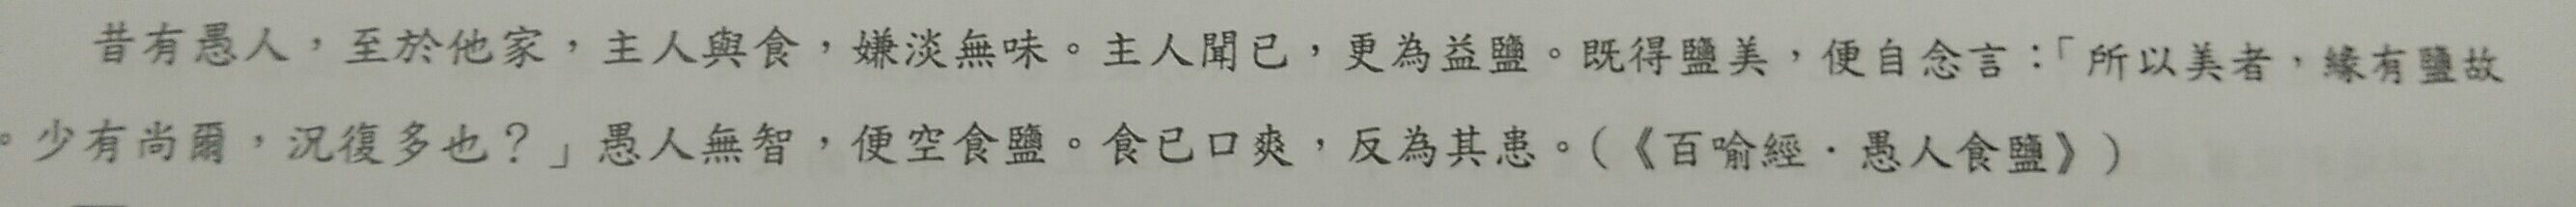 昔有愚人，至於他家，主人與食，嫌淡無味。主人聞已，更為益鹽。既得鹽美，便自念言：「所以美者，緣有鹽故
。少有尚爾，況復多也？」愚人無智，便空食鹽。食已口爽，反為其患。(《百喻經．愚人食鹽》)